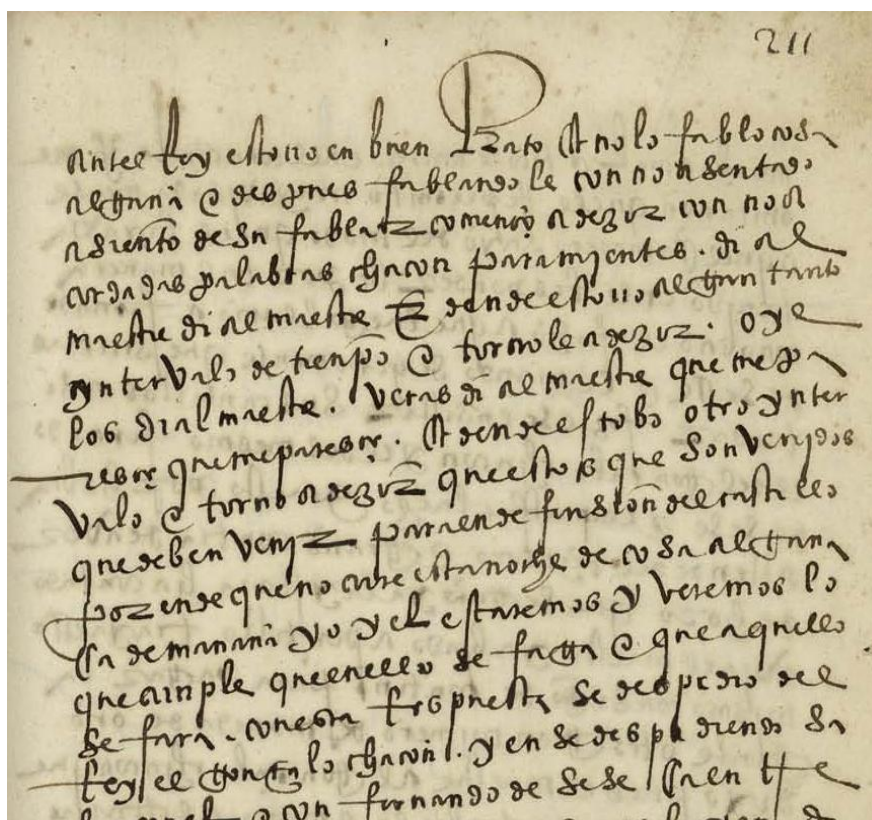 211
antel Rey estouo en buen Rato q no lo fablo cosa
alguna e despues fablandole con no asentado
asiento de su fablar començo a dezir con no a
cordadas palabras chacon paramientes. di al
maestre di al maestre E dende estouo algun tanto
yntervalo de tienpo e tornole a dezir. oye
los di al maestre. veras di al maestre que me pa
resçe que me paresçe. dende estobo otro ynter
valo e torno a dezir que estos que son venidos
que deben venir para ende funsion del castillo
por ende que no cure esta noche de cosa alguna
ca de manana yo y el estaremos y veremos lo
que cunple que en ello se faga e que aquello
se fara. con esta respuesta se despidio del
Rey el gonçalo chacon. y en se despidiendo sa
e con fernando de sese